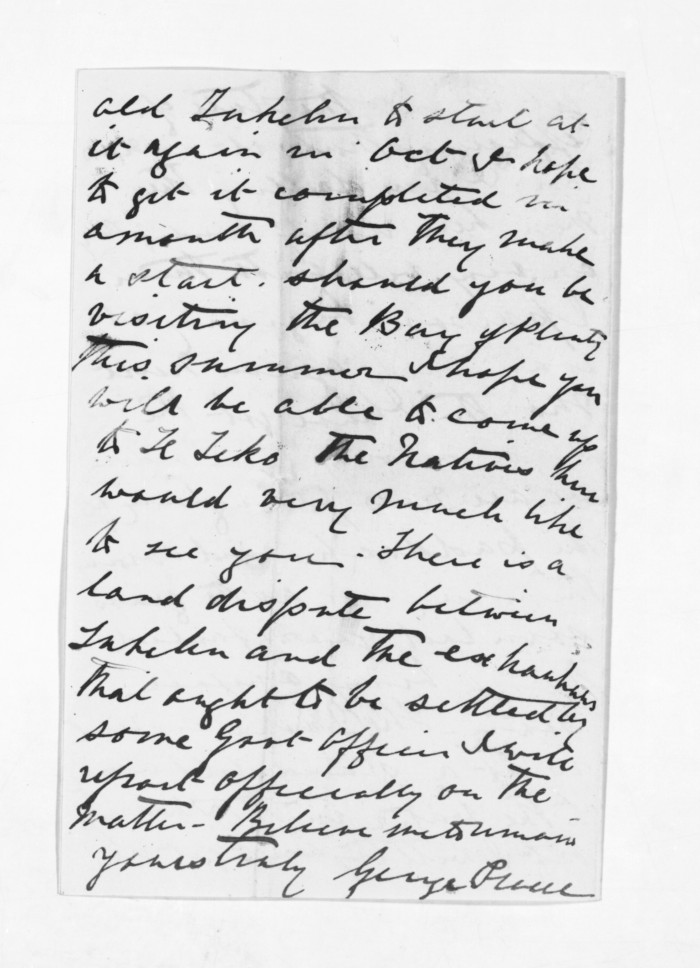 old Tukehu to start at
it again in Oct I hope
to get it completed in
a month after they make
a start. should you be
visiting the Bay of Plenty
this summer I hope you
will be able to come up
to Te Teko the Natives here
would very much like
to see you. There is a
land dispute between
Tukehu and the ex hauhaus
that ought to be settled by
some Govt Officer I will
report officially on the
matter - Believe me to remain
yours truly George Preece